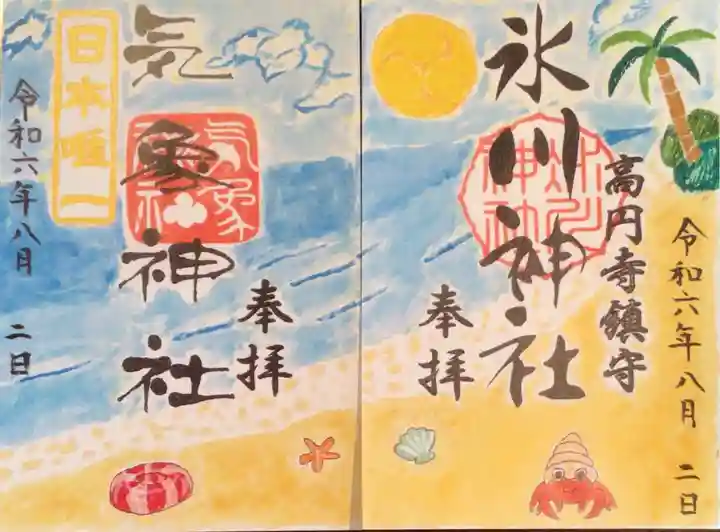 高円寺鎮守
氷川神社
奉拝
令和六年八月 二日
日本唯一
気象神社
奉拝
令和六年八月 二日